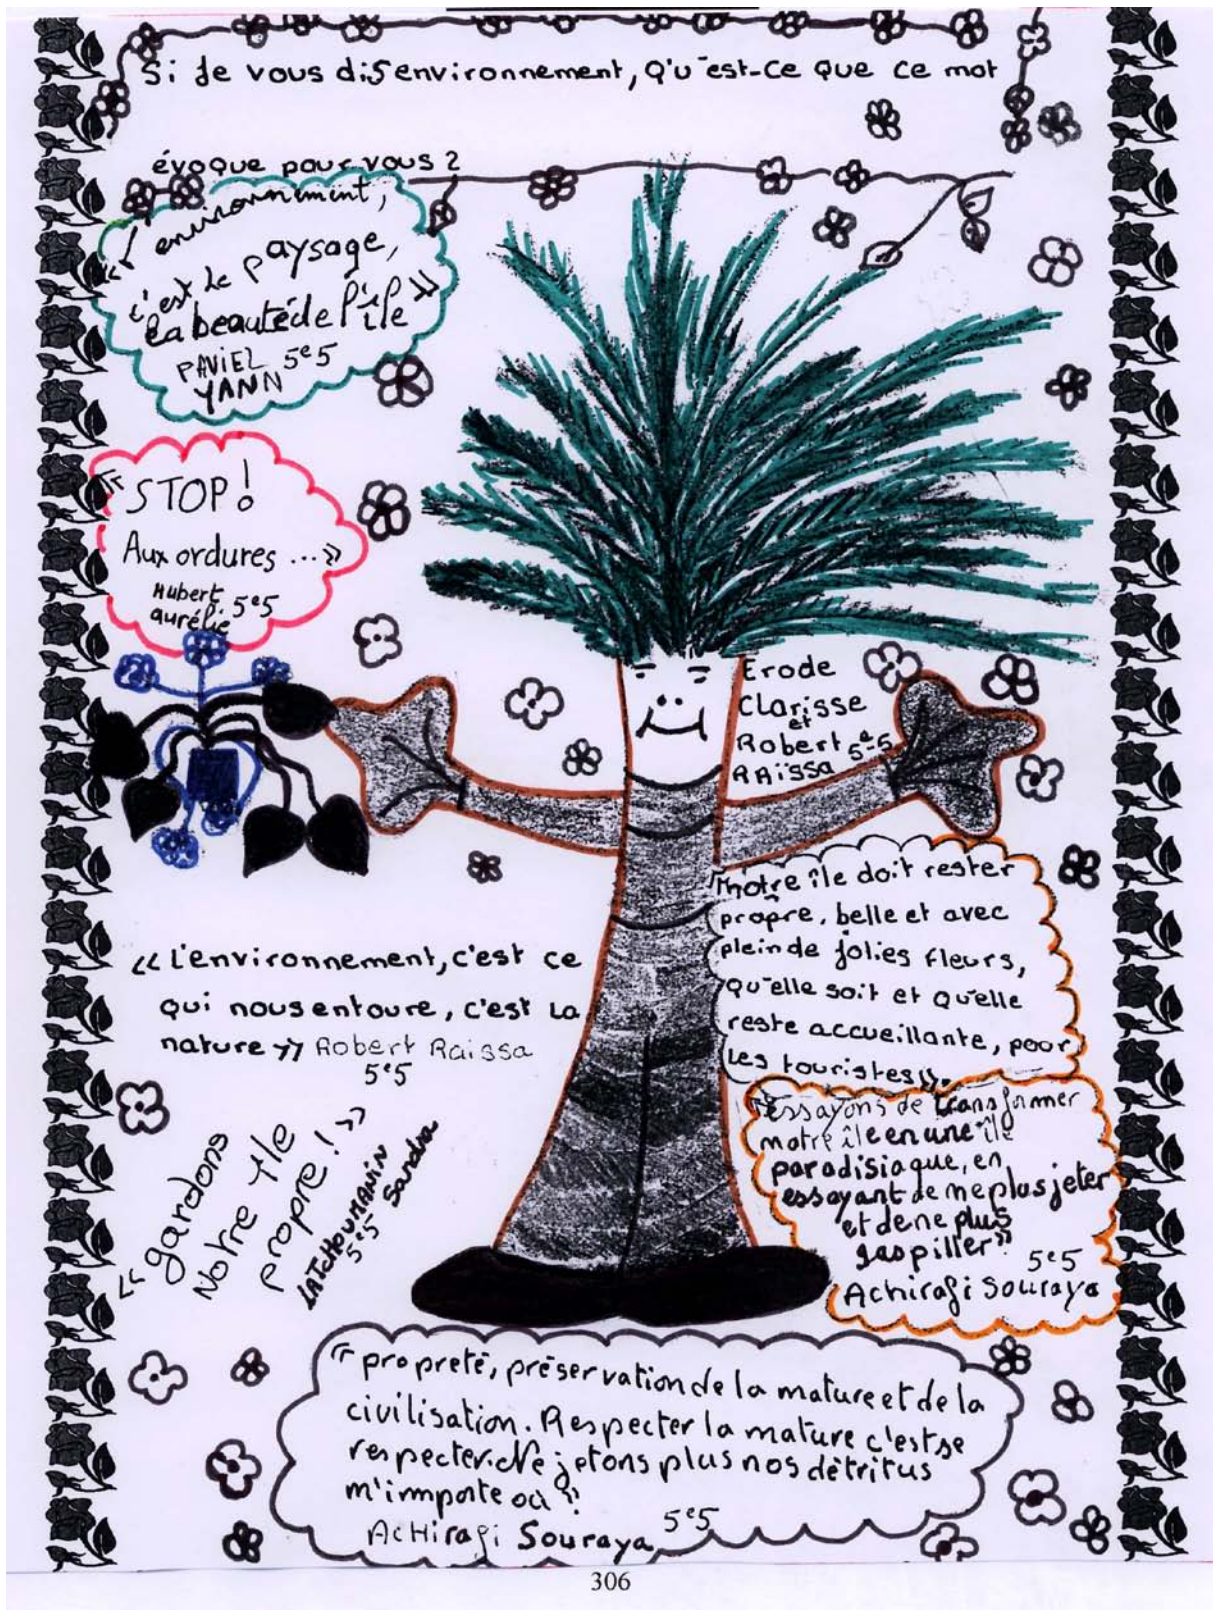 Si Je vous dis environnement, Qu'est-Ce Que Ce mot
évoque pour vous ?
« l'environnement,
c'est le paysage,
la beauté de l'île »
PAVIEL 5e5
YANN
« STOP !
Aux ordures ... »
Hubert
aurélie 5e5
Erode
Clarisse
et
Robert 5e-5
RAïssa
"notre île doit rester
propre, belle et avec
plein de jolies fleurs,
qu'elle soit et qu'elle
reste accueillante, pour
Les touristes ».
« L'environnement, c'est ce
qui nous entoure, c'est La
nature » Robert Raissa
5e5
"Essayons de transformer
notre île en une île
paradisiaque, en
essayant de ne plus jeter
et de ne plus
gaspiller"
5e5
Achirafi Souraya
« gardons
Notre île
propre ! »
LATCHOUMANIN
5e5 Sandra
" propreté, préservation de la nature et de la
civilisation. Respecter la nature c'est se
respecter. Ne jetons plus nos détritus
n'importe où "
Achirafi Souraya 5e5
306